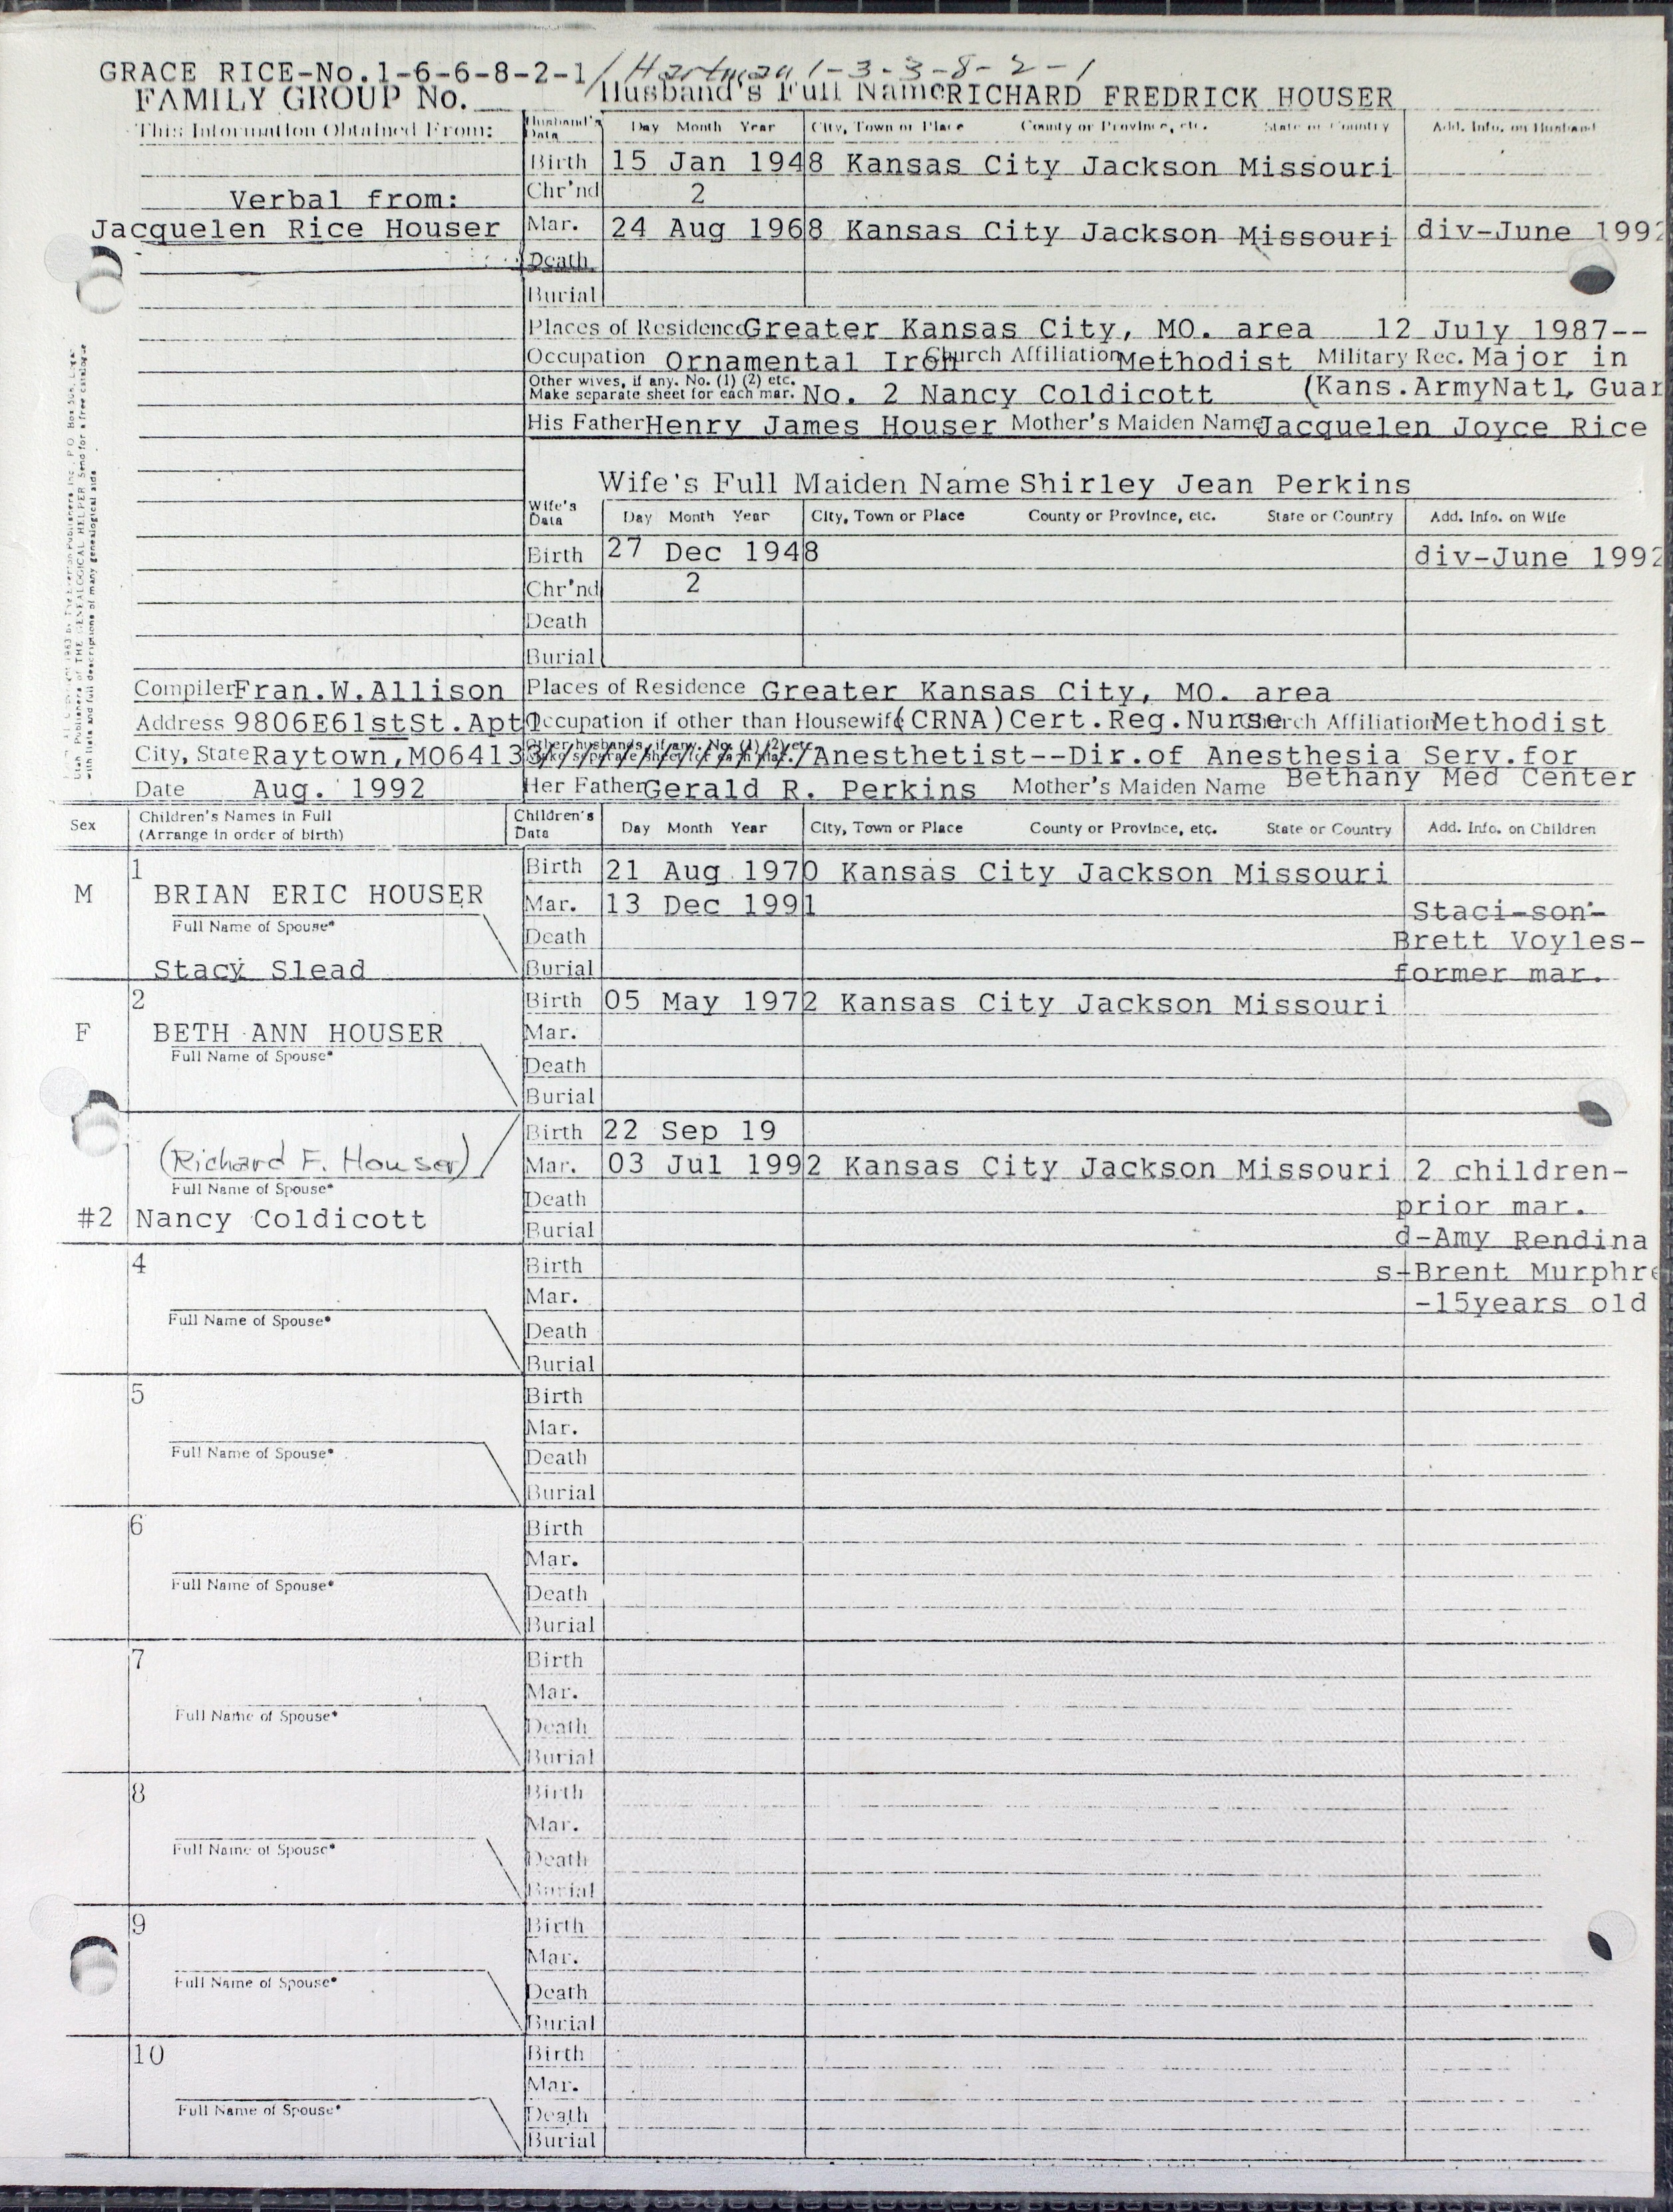 GRACE RICE-No.1-6-6-8-2-1/Hartman 1-3-3-8-2-1
FAMILY GROUP No. Husband's Full Name RICHARD FREDRICK HOUSER
This Information Obtained From: Husband's Data Day Month Year City, Town or Place County or Province, etc. State or Country Add. Info. on Husband
Birth 15 Jan 1948 Kansas City Jackson Missouri
Verbal from: Chr'nd 2
Jacquelen Rice Houser Mar. 24 Aug 1968 Kansas City Jackson Missouri div-June 1992
Death
Burial
Places of Residence Greater Kansas City, MO. area 12 July 1987--
Occupation Ornamental Iron Church Affiliation Methodist Military Rec. Major in
Other wives, if any. No. (1) (2) etc.
Make separate sheet for each mar. No. 2 Nancy Coldicott (Kans.ArmyNatl. Guar
His Father Henry James Houser Mother's Maiden Name Jacquelen Joyce Rice
Wife's Full Maiden Name Shirley Jean Perkins
Wife's Data Day Month Year City, Town or Place County or Province, etc. State or Country Add. Info. on Wife
Birth 27 Dec 1948 div-June 1992
Chr'nd 2
Death
Burial
Compiler Fran.W.Allison Places of Residence Greater Kansas City, MO. area
Address 9806E61stSt.Apt1 Occupation if other than Housewife (CRNA)Cert.Reg.Nurse Church Affiliation Methodist
City, State Raytown,MO64133 Other husbands, if any. No. (1) (2) etc. Make separate sheet for each mar. Anesthetist--Dir.of Anesthesia Serv.for
Bethany Med Center
Date Aug. 1992 Her Father Gerald R. Perkins Mother's Maiden Name
Sex Children's Names in Full (Arrange in order of birth) Children's Data Day Month Year City, Town or Place County or Province, etc. State or Country Add. Info. on Children
1 Birth 21 Aug 1970 Kansas City Jackson Missouri
M BRIAN ERIC HOUSER Mar. 13 Dec 1991 Staci-son-
Full Name of Spouse* Death Brett Voyles-
Stacy Slead Burial former mar.
2 Birth 05 May 1972 Kansas City Jackson Missouri
F BETH ANN HOUSER Mar.
Full Name of Spouse* Death
Burial
Birth 22 Sep 19
(Richard F. Houser) Mar. 03 Jul 1992 Kansas City Jackson Missouri 2 children-
Full Name of Spouse* Death prior mar.
#2 Nancy Coldicott Burial d-Amy Rendina
4 Birth s-Brent Murphre
Mar. -15years old
Full Name of Spouse* Death
Burial
5 Birth
Mar.
Full Name of Spouse* Death
Burial
6 Birth
Mar.
Full Name of Spouse* Death
Burial
7 Birth
Mar.
Full Name of Spouse* Death
Burial
8 Birth
Mar.
Full Name of Spouse* Death
Burial
9 Birth
Mar.
Full Name of Spouse* Death
Burial
10 Birth
Mar.
Full Name of Spouse* Death
Burial